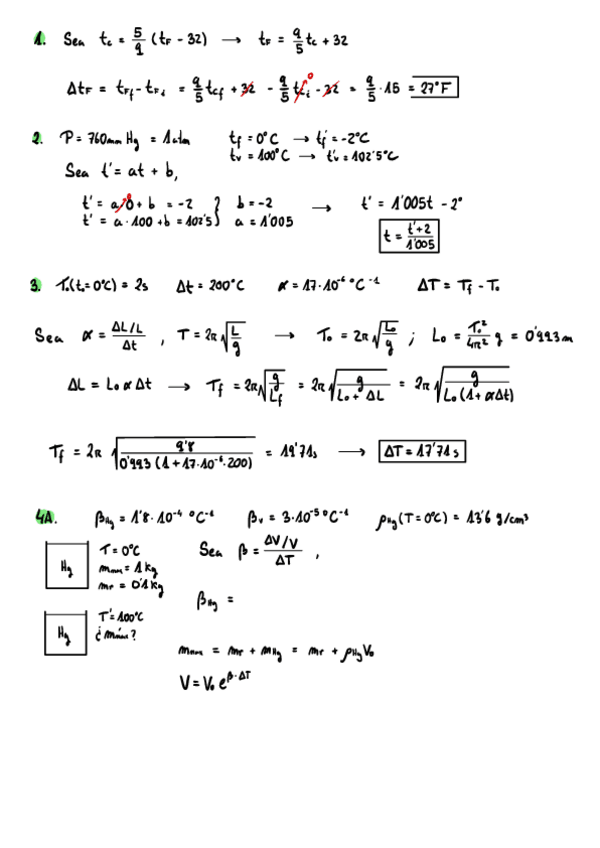 1. Sea tc = 5/9 (tF - 32) → tF = 9/5 tc + 32
ΔtF = tFf - tFi = 9/5 tcf + 32 - 9/5 tci - 32 = 9/5 · 15 = 27°F
2. P = 760mm Hg = 1atm tf = 0°C → tf' = -2°C
tv = 100°C → tv' = 102'5°C
Sea t' = at + b,
t' = a·0 + b = -2 } b = -2 → t' = 1'005t - 2°
t' = a·100 + b = 102'5 } a = 1'005 t = t'+2/1'005
3. To(to=0°C) = 2s Δt = 200°C α = 17·10⁻⁶ °C⁻¹ ΔT = Tf - To
Sea α = ΔL/L/Δt , T = 2π√L/g → To = 2π√Lo/g ; Lo = To²/4π² g = 0'993m
ΔL = Lo α Δt → Tf = 2π√g/Lf = 2π√g/Lo + ΔL = 2π√g/Lo(1+ αΔt)
Tf = 2π √9'8/0'993 (1+17·10⁻⁶·200) = 19'71s → ΔT = 17'71s
4A. βHg = 1'8·10⁻⁴ °C⁻¹ βv = 3·10⁻⁵ °C⁻¹ ρHg(T=0°C) = 13'6 g/cm³
Hg T = 0°C Sea β = ΔV/V/ΔT ,
= 1kg
mr = 0'1kg
βHg =
Hg T' = 100°C
¿ ?
= mr + mHg = mr + ρHg Vo
V = Vo e^β·ΔT